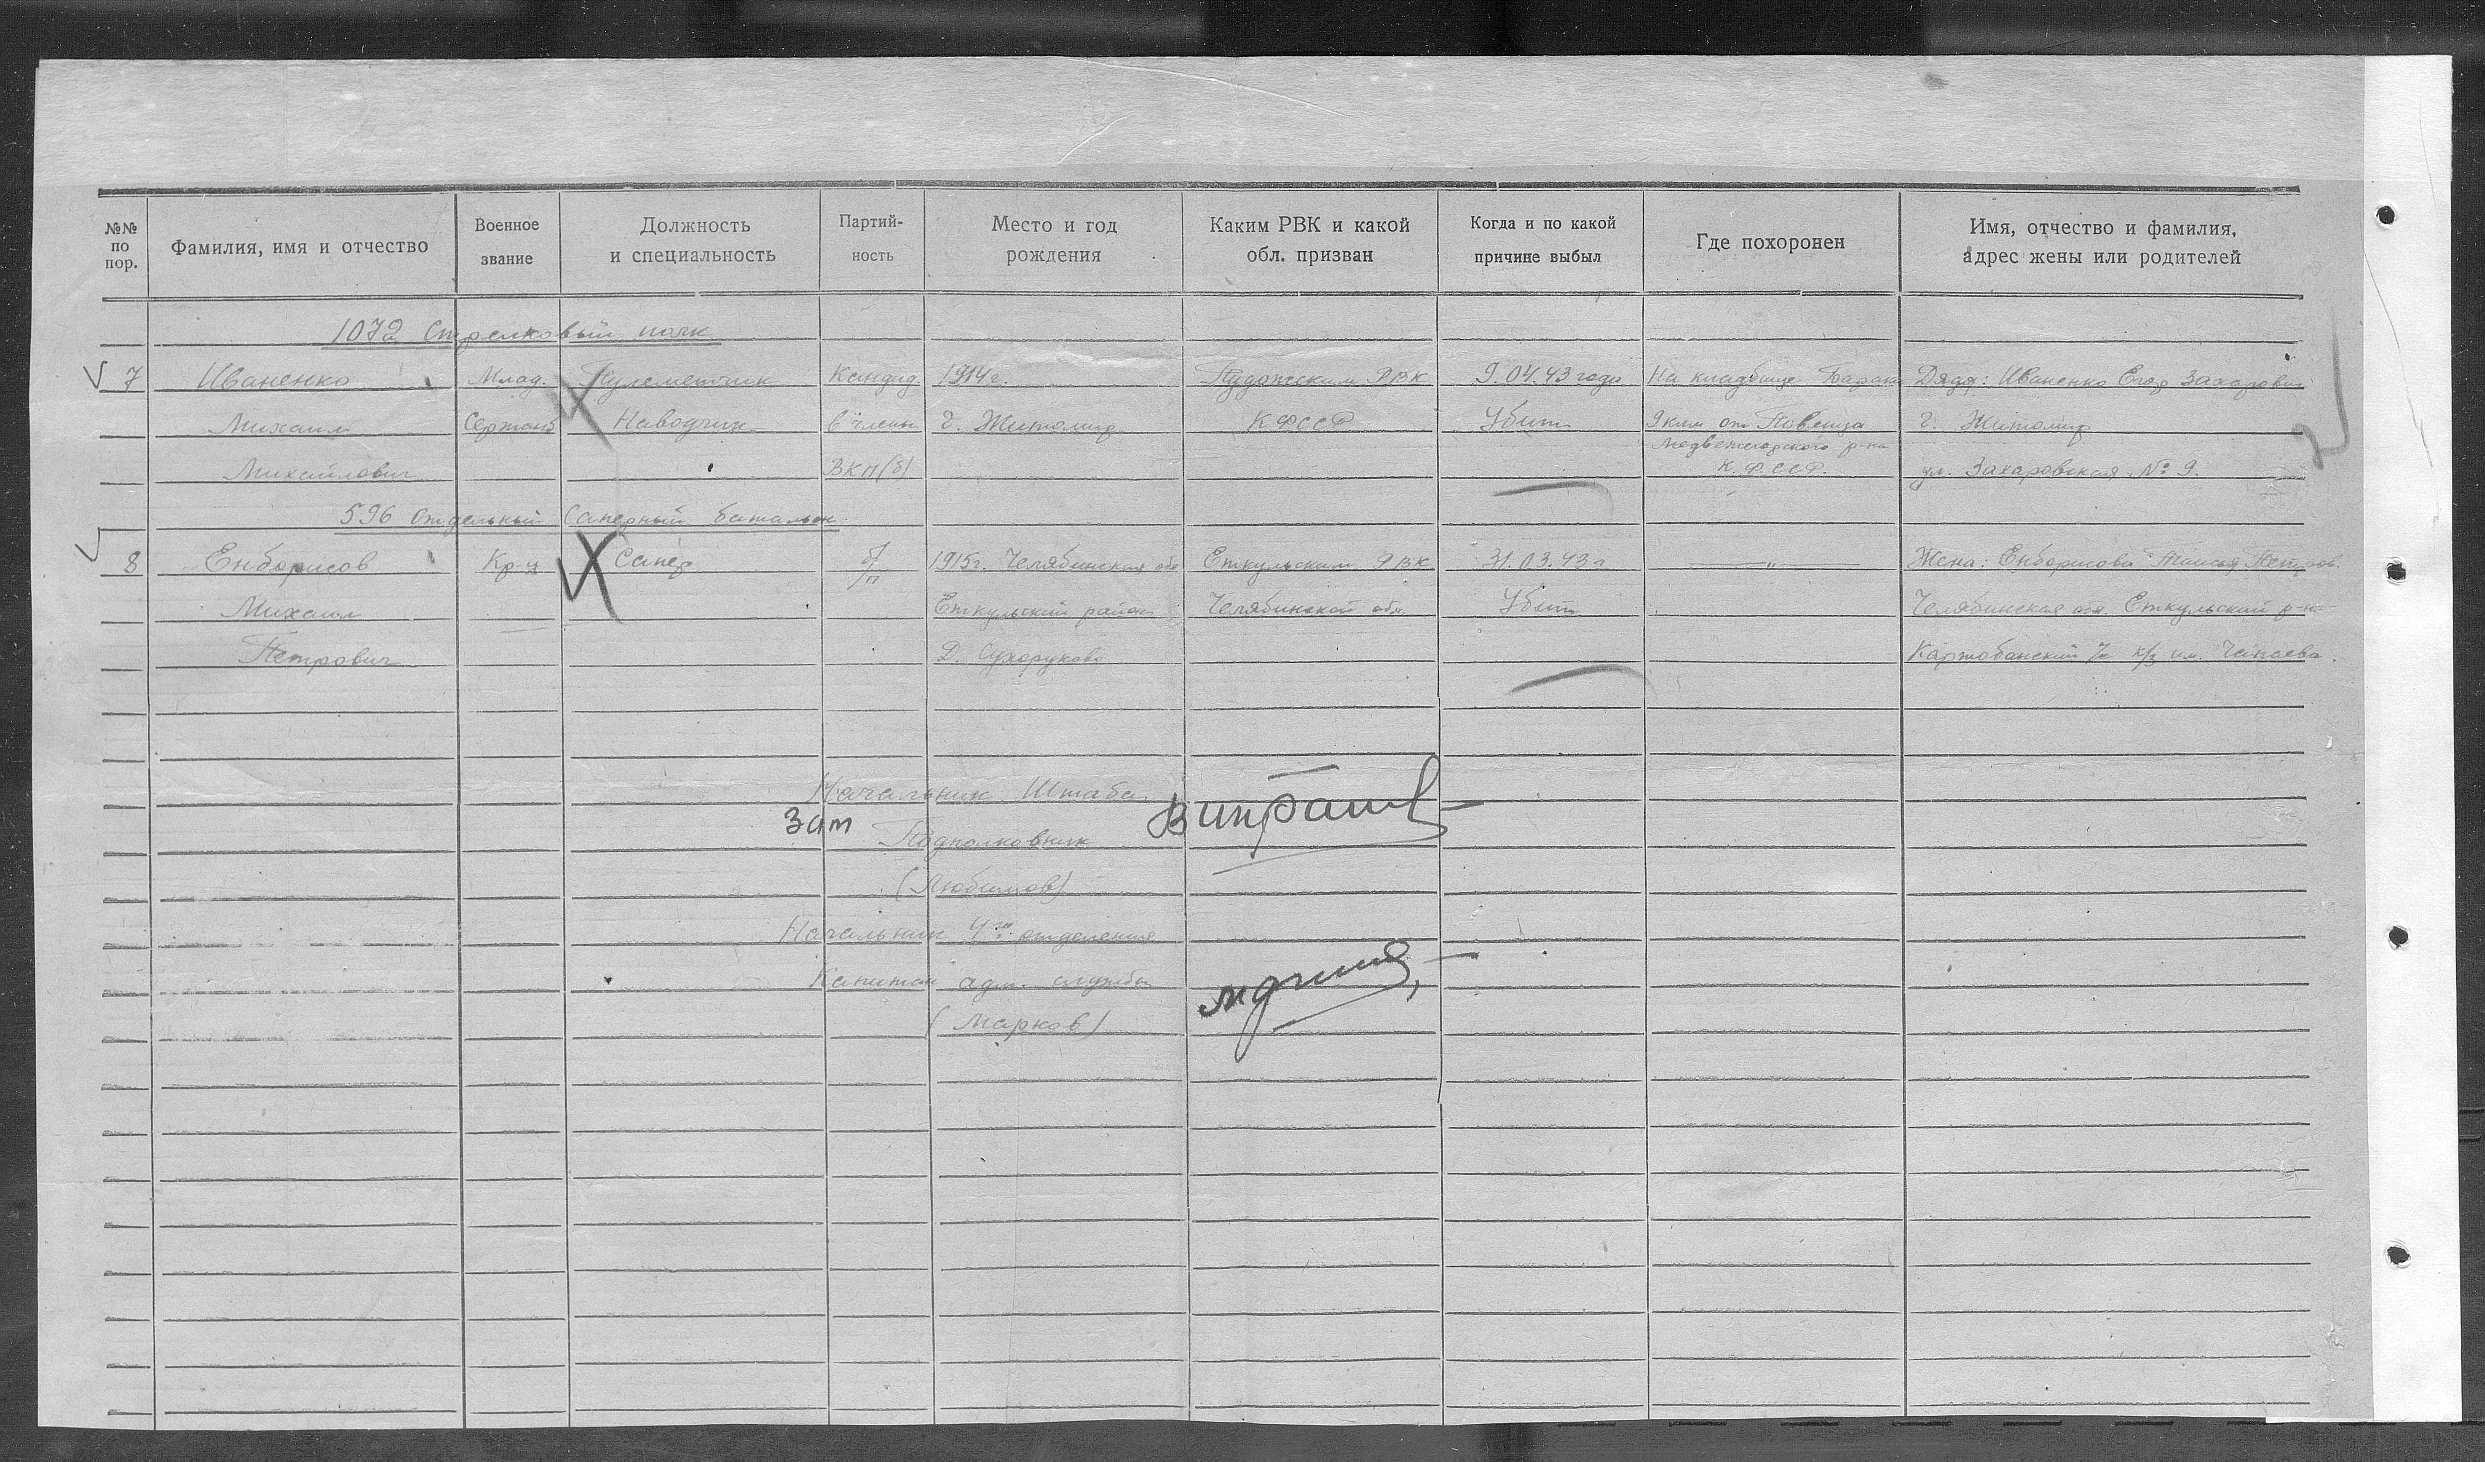 №№ по пор. Фамилия, имя и отчество Военное звание Должность и специальность Партий- ность Место и год рождения Каким РВК и какой обл. призван Когда и по какой причине выбыл Где похоронен Имя, отчество и фамилия, адрес жены или родителей
1072 Стрелковый полк
7 Иваненко Млад. Пулеметчик Кандид. 1914 г. Пудожским РВК 9.04.43 года На кладбище Дядя: Иваненко Егор Захарович
Михаил Сержант Наводчик в члены г. Житомир КФССР Убит 9 клм от Повенца г. Житомир
Медвежегорского р-на
Михайлович ВКП(б) К.Ф.ССР. ул. Захаровская № 9.
596 Отдельный Саперный батальон
8 Енборисов Кр-ц Сапер б/п 1915г. Челябинская обл Еткульским РВК 31.03.43г — " — Жена: Енборисова Таисья Петров.
Михаил Еткульский район Челябинской обл. Убит Челябинская обл. Еткульский р-н
Петрович Д. Сухоруково им. Чапаева.
Начальник Штаба
Зам
Подполковник
(Любимов)
Начальник 4го отделения
Капитан адм. службы
(Марков)